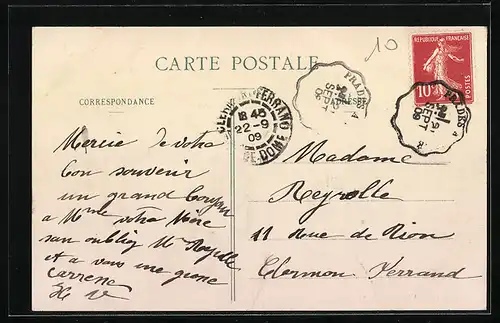 10
CARTE POSTALE
REPUBLIQUE FRANÇAISE
10
POSTES
CORRESPONDANCE
ADRESSE
PRADES A
SEPT
09
PRADES A
SEPT
09
CLERMONT-FERRAND
18 45
22-9
09
PUY-DE-DOME
Mercie de votre
bon souvenir
un grand bonjour
a Mme votre Mère
san oublier Mr Reyrolle
et a vous une grosse
carresse
Madame
Reyrolle
11 Rue de Rion
Clermon Ferrand